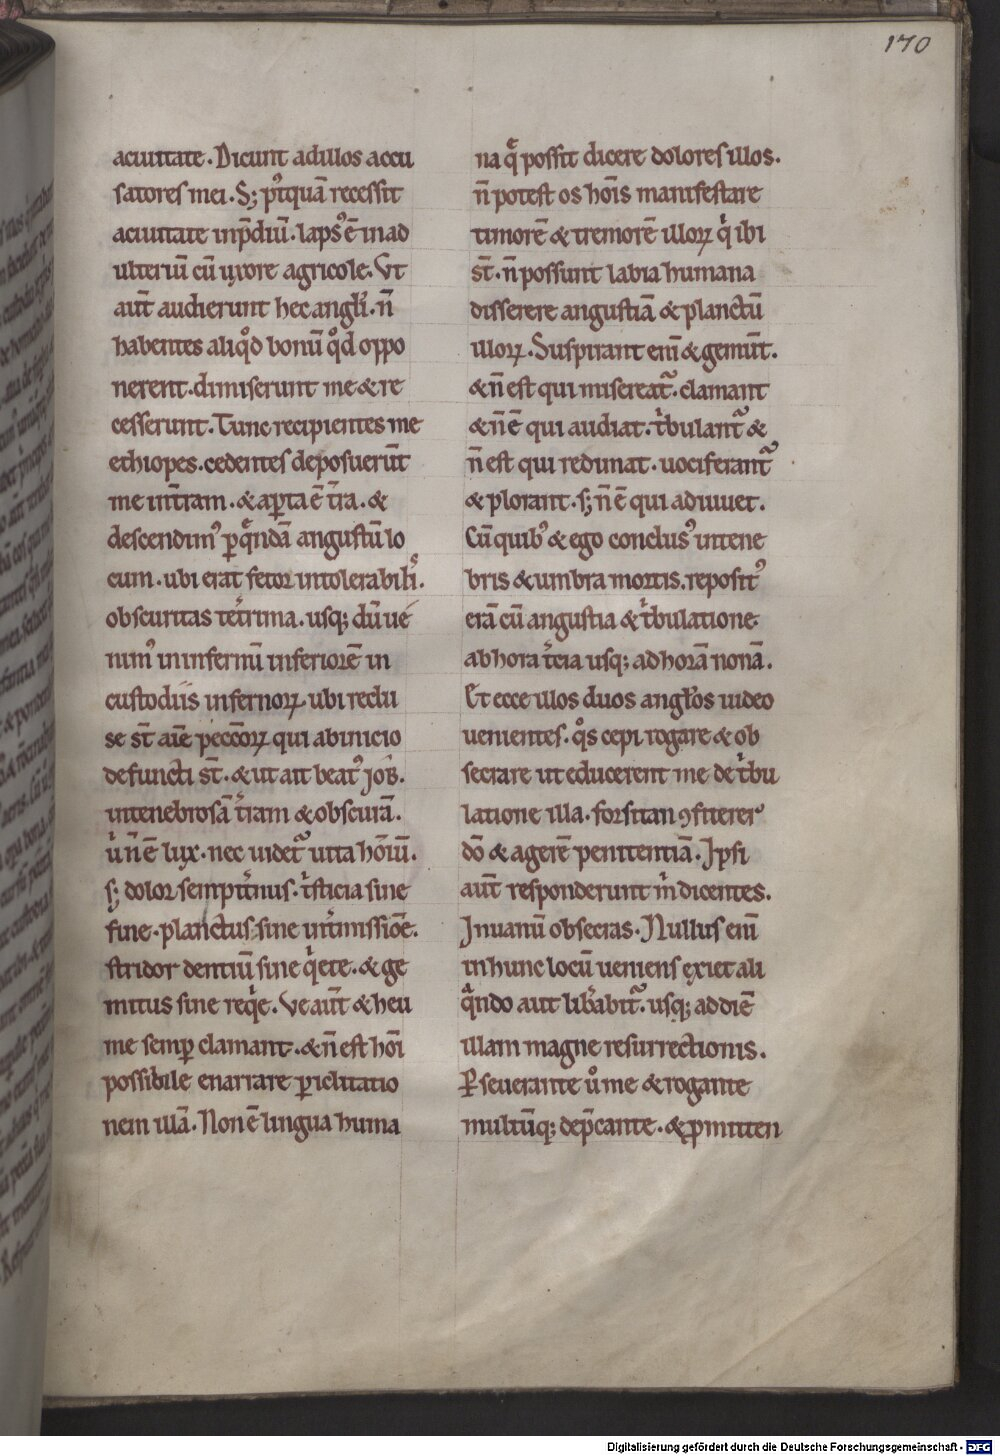 170
aciuitate. Dicunt adillos accu
satores mei. S; pꝰtquā recessit
aciuitate inp̄diū. lapsꝰ ē in ad
ulteriū cū uxore agricole. Vt
aut̄ audierunt hec angłi. n̄
habentes aliqͦd bonū qͦd oppo
nerent. dimiserunt me & re
cesserunt. Tunc recipientes me
ethiopes. cedentes deposuerūt
me int̄ram. & aꝑta ē t̄ra. &
descendimꝰ ꝑ qͣndā angustū lo
cum. ubi erat fetor intolerabilis.
obscuritas tet̄rima. usq; dū ue
nimꝰ ininfernū inferiorē in
custodiis infernoꝝ. ubi reclu
se st̄ aīe peccōꝝ qui abinicio
defuncti st̄. & ut ait beatꝰ Job.
intenebrosā t̄ram & obscurā.
ů n̄ ē lux. nec uidet᷑ uita hōīū.
s; dolor sempit̄nus. tͥsticia sine
fine. planctus sine int̄missiōe.
stridor dentiū sine qͥete. & ge
mitus sine reqͥe. Ve aut̄ & heu
me semꝑ clamant. & n̄ est hōi
possibile enarrare ꝑiclitatio
nem illā. Non ē lingua huma
na qͣ possit dicere dolores illos.
n̄ potest os hōis manifestare
timorē & tremorē illoꝝ qͥ ibi
st̄. n̄ possunt labia humana
disserere angustiā & planctū
illoꝝ. Suspirant enī & gemūt.
& n̄ est qui misereat᷑. clamant
& n̄ ē qui audiat. tͥbulant᷑ &
n̄ est qui redimat. uociferant᷑
& plorant. s; n̄ ē qui adiuuet.
Cū quibꝰ & ego conclusꝰ intene
bris & umbra mortis. repositꝰ
erā cū angustia & tͥbulatione
abhora t̄cia usq; adhorā nonā.
Et ecce illos duos angłos uideo
uenientes. qͦs cepi rogare & ob
secrare ut educerent me de tͥbu
latione illa. forsitan ꝯfiterer
dō & agerē penitentiā. Ipsi
aut̄ responderunt m̄ dicentes.
Inuanū obsecras. Nullus enī
inhunc locū ueniens exiet ali
qͣndo aut lib̄abit᷑. usq; addiē
illam magne resurrectionis.
Ꝑseuerante uͦ me & rogante
multūq; dep̄cante. & ꝓmitten
Digitalisierung gefördert durch die Deutsche Forschungsgemeinschaft - DFG